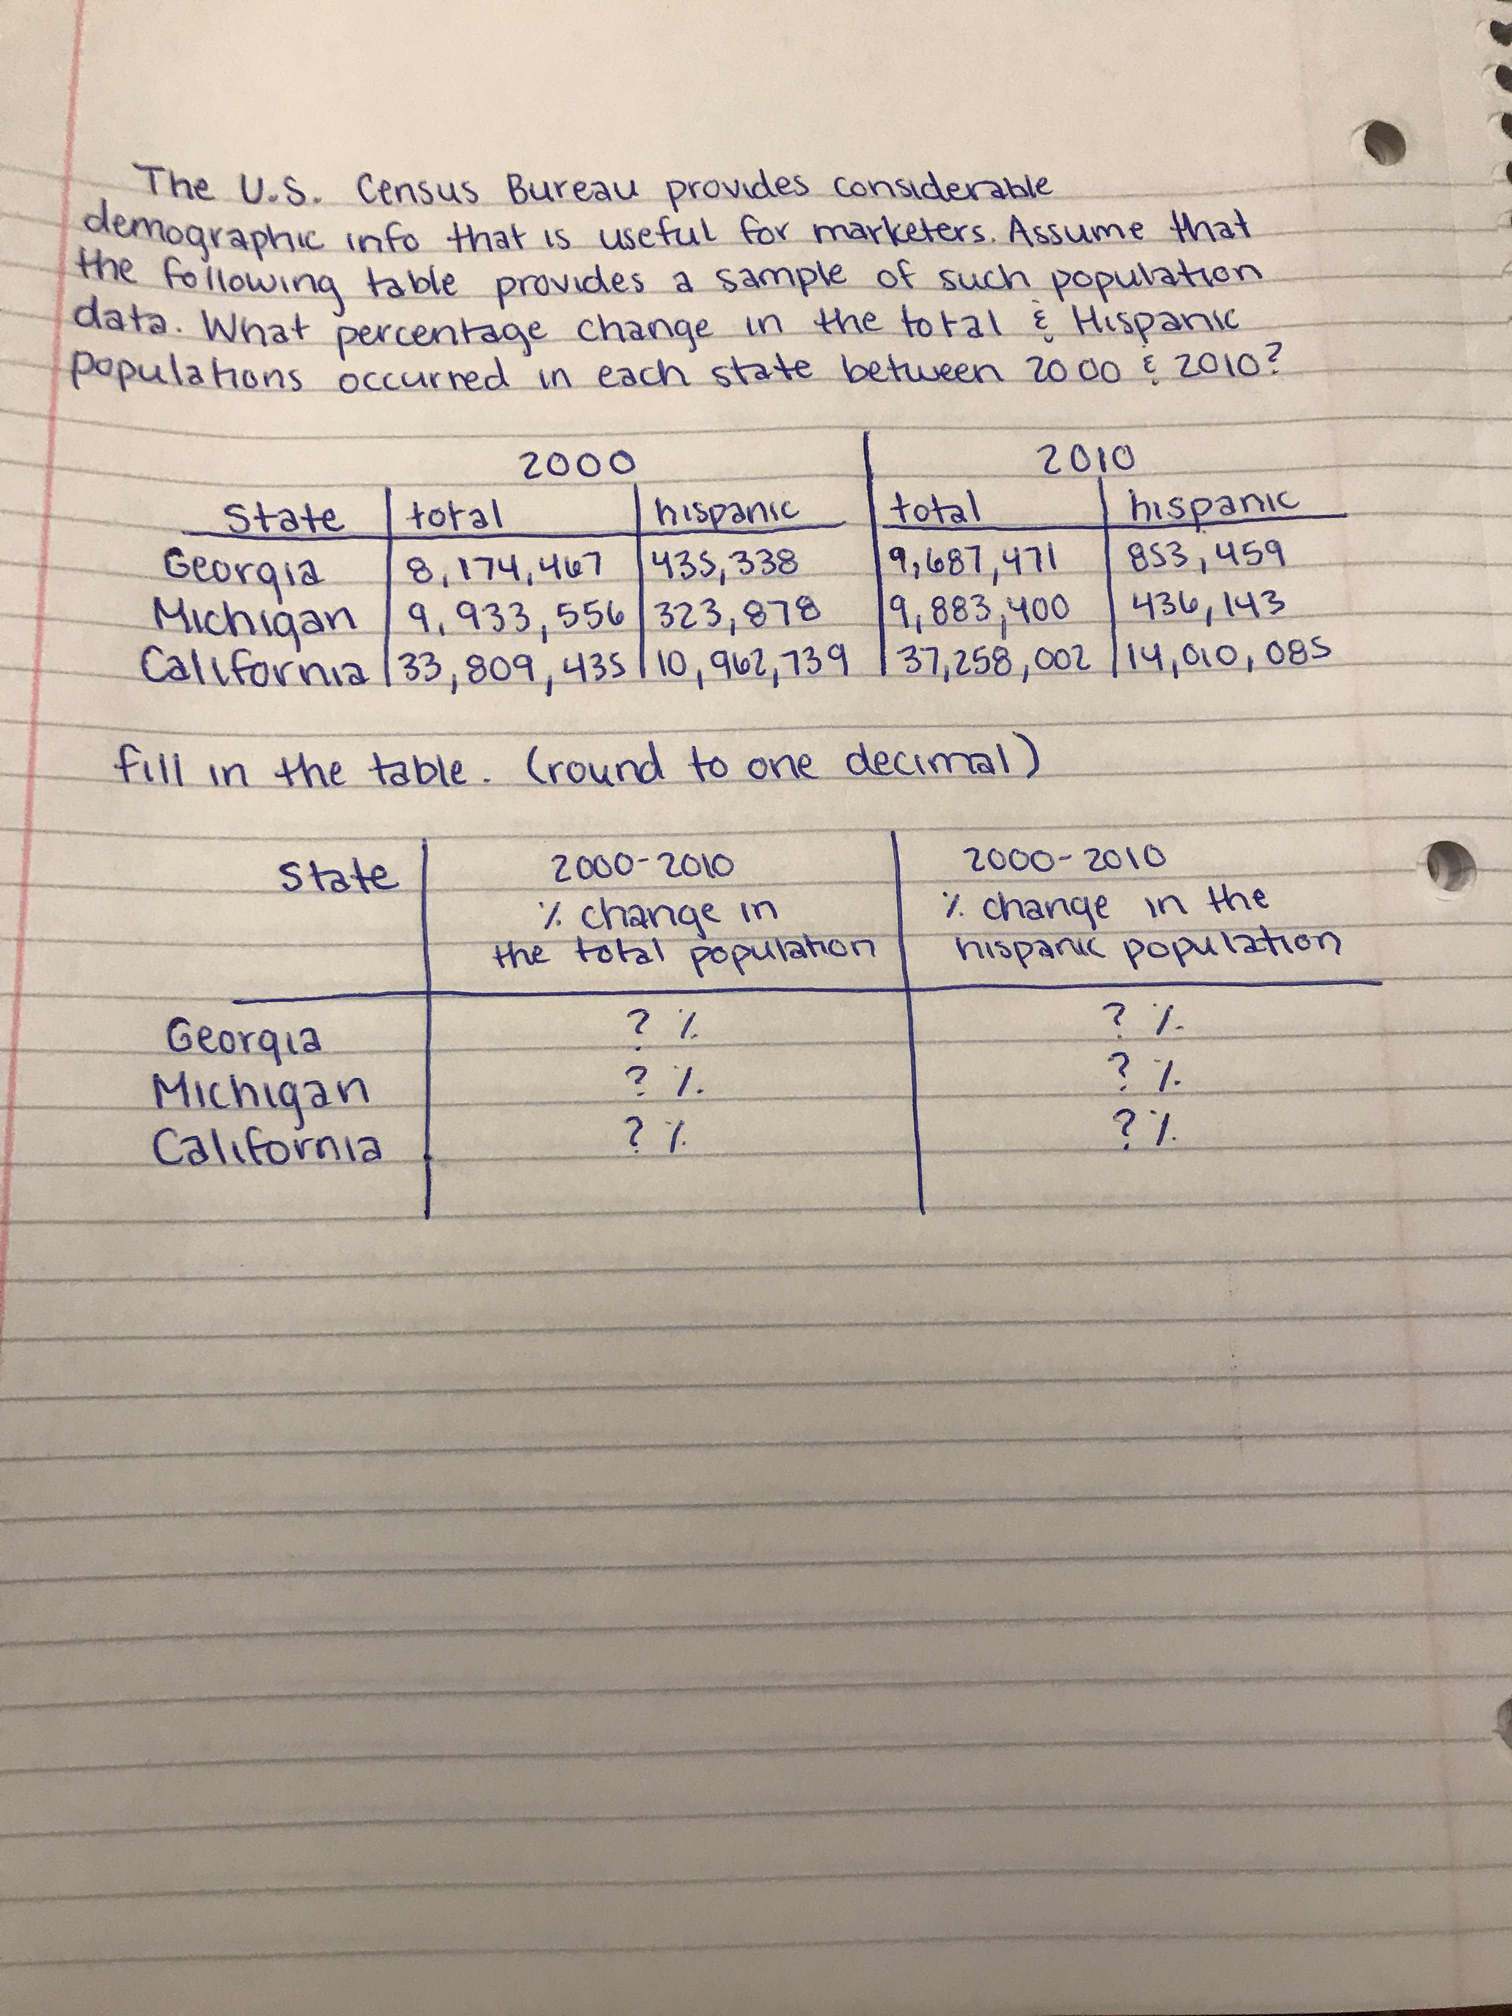 The U.S. Census Bureau provides considerable
demographic info that is useful for marketers. Assume that
the following table provides a sample of such population
data. What percentage change in the total & Hispanic
populations occurred in each state between 2000 & 2010?
2000 2010
State total hispanic total hispanic
Georgia 8,174,467 435,338 9,687,471 853,459
Michigan 9,933,556 323,878 9,883,400 436,143
California 33,809,435 10,962,739 37,258,002 14,010,085
fill in the table. (round to one decimal)
State 2000-2010 2000-2010
% change in % change in the
the total population hispanic population
Georgia ? % ? %
Michigan ? % ? %
California ? % ? %